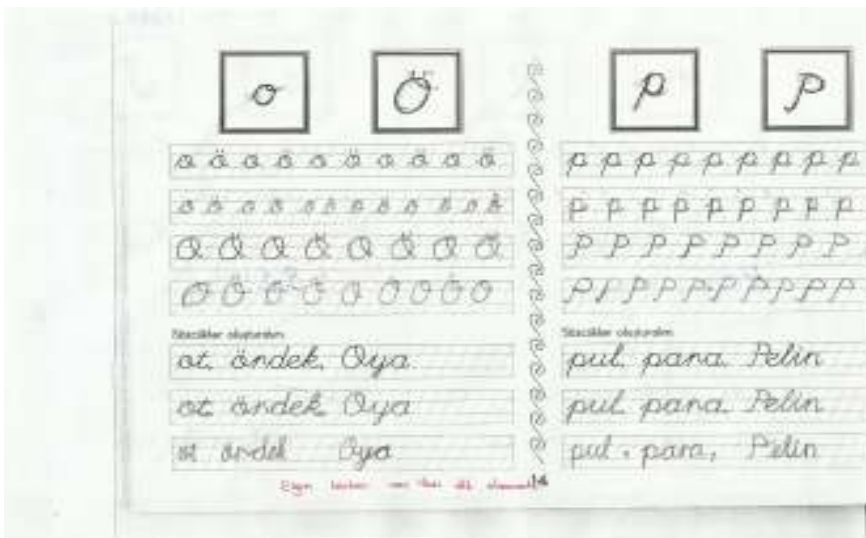 o Ö
o ö o ö o ö o ö o ö
o ö o ö o ö o ö o ö o ö
O Ö O Ö O Ö O Ö
O Ö O Ö O Ö O Ö O
Sözcükler oluşturalım
ot, ördek, Oya
ot, ördek, Oya
ot ördek Oya
14
p P
p p p p p p p p p
p p p p p p p p p
P P P P P P P P P
P P P P P P P P P P
Sözcükler oluşturalım
pul, para, Pelin
pul, para, Pelin
pul, para, Pelin